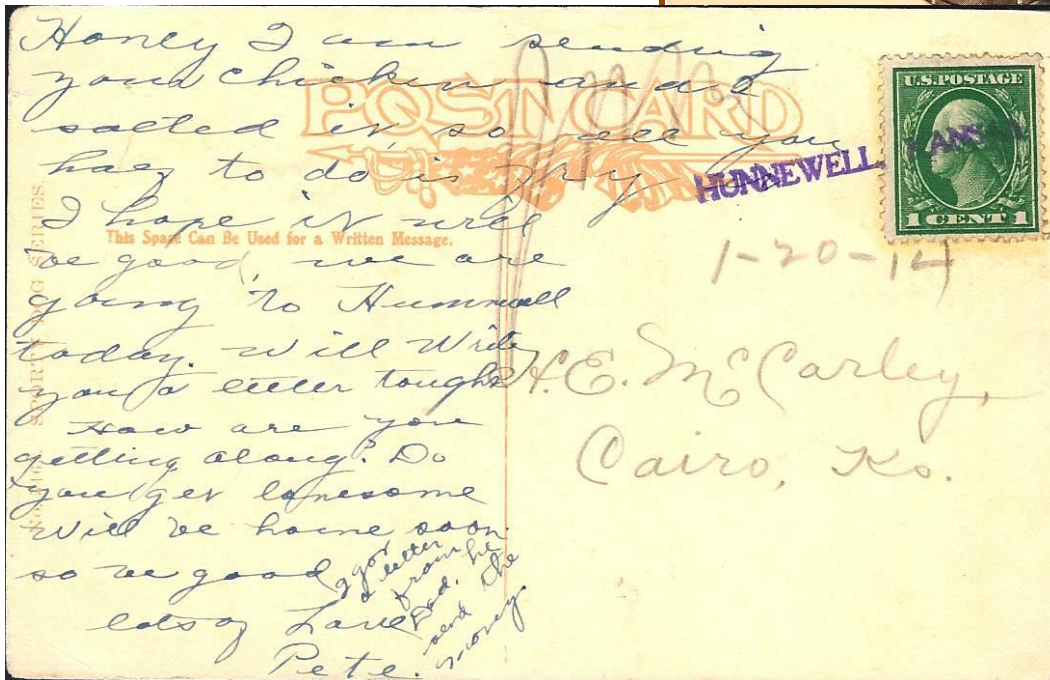 Honey I am sending
you chicken and I
salted it so all you
haf to do is fry
I hope it will
be good, we are
going to Hunnwell
today. Will Write
you a letter tonght
How are you
getting along? Do
you get lonesome
Will be home soon.
so be good
lots of Love
Pete.
I got
a letter
from
Dad, he
send the
money.
POST CARD
This Space Can Be Used for a Written Message.
SPORTY DOG SERIES.
U.S. POSTAGE
1 CENT 1
HUNNEWELL, KANSAS
1-20-14
H. E. McCarley,
Cairo, Ks.